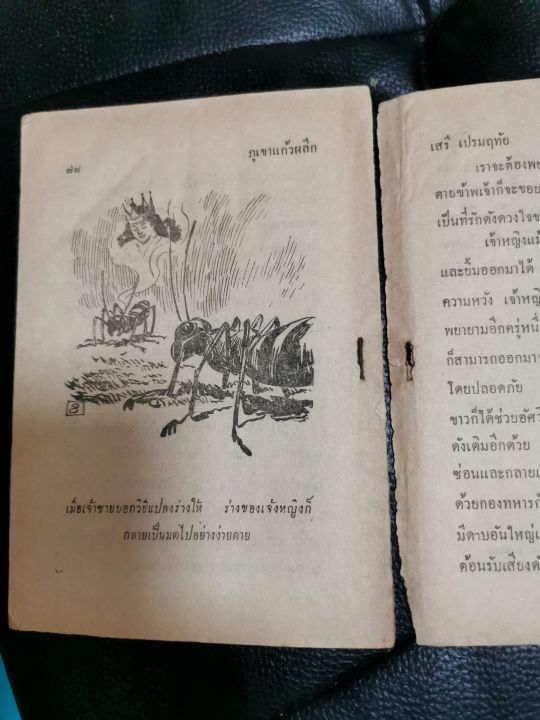 ภูเขาแก้วผลึก
๗๘
เมื่อเจ้าชายบอกวิธีแปลงร่างให้ ร่างของเจ้งหญิงก็
กลายเป็นมดไปอย่างง่ายดาย
เสรี เปรมฤทัย
เราจะต้องพย
ตายข้าพเจ้าก็จะขอย
เป็นที่รักดังดวงใจข
เจ้าหญิงแม้
และยิ้มออกมาได้
ความหวัง เจ้าหญิ
พยายามอีกครู่หนึ่
ก็สามารถออกมา
โดยปลอดภัย
ขาวก็ได้ช่วยอัศวิ
ดังเดิมอีกด้วย
ซ่อนและกลายเ
ด้วยกองทหารก้
มีดาบอันใหญ่เ
ต้อนรับเสียงดั